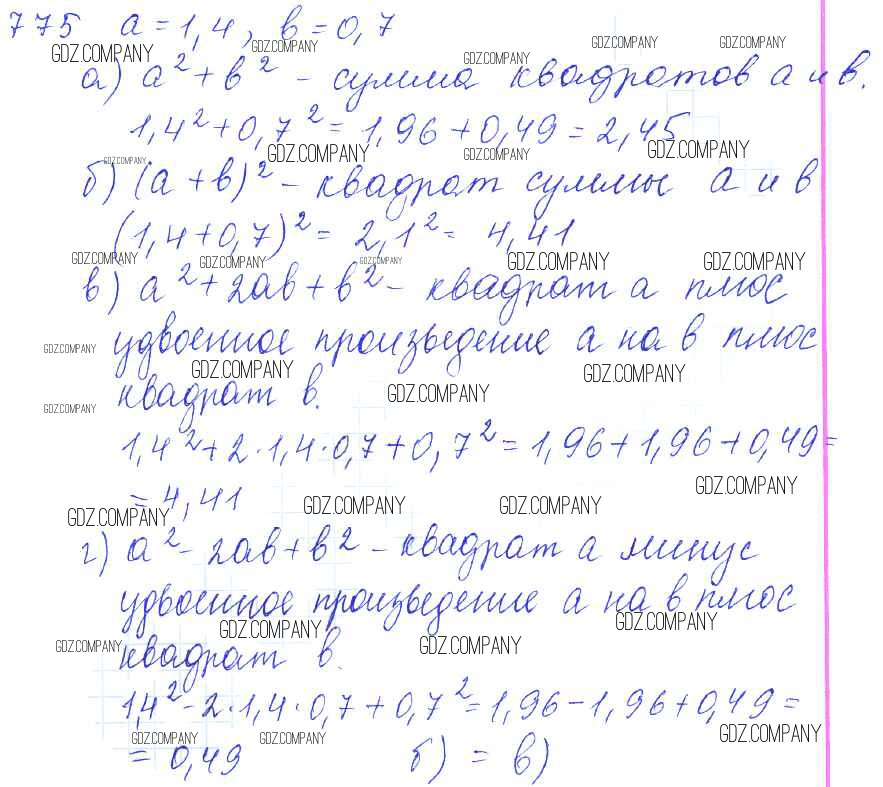 775 a = 1,4, b = 0,7
GDZ.COMPANY GDZ.COMPANY GDZ.COMPANY GDZ.COMPANY GDZ.COMPANY
а) a² + b² - сумма квадратов a и b.
1,4² + 0,7² = 1,96 + 0,49 = 2,45
GDZ.COMPANY GDZ.COMPANY GDZ.COMPANY GDZ.COMPANY
б) (a + b)² - квадрат суммы a и b
(1,4 + 0,7)² = 2,1² = 4,41
GDZ.COMPANY GDZ.COMPANY GDZ.COMPANY GDZ.COMPANY GDZ.COMPANY
в) a² + 2ab + b² - квадрат a плюс
удвоенное произведение a на b плюс
GDZ.COMPANY GDZ.COMPANY GDZ.COMPANY
квадрат b.
GDZ.COMPANY GDZ.COMPANY
1,4² + 2·1,4·0,7 + 0,7² = 1,96 + 1,96 + 0,49 =
= 4,41
GDZ.COMPANY GDZ.COMPANY GDZ.COMPANY GDZ.COMPANY
г) a² - 2ab + b² - квадрат a минус
удвоенное произведение a на b плюс
GDZ.COMPANY GDZ.COMPANY
квадрат b.
GDZ.COMPANY GDZ.COMPANY
1,4² - 2·1,4·0,7 + 0,7² = 1,96 - 1,96 + 0,49 =
GDZ.COMPANY GDZ.COMPANY GDZ.COMPANY
= 0,49 б) = в)